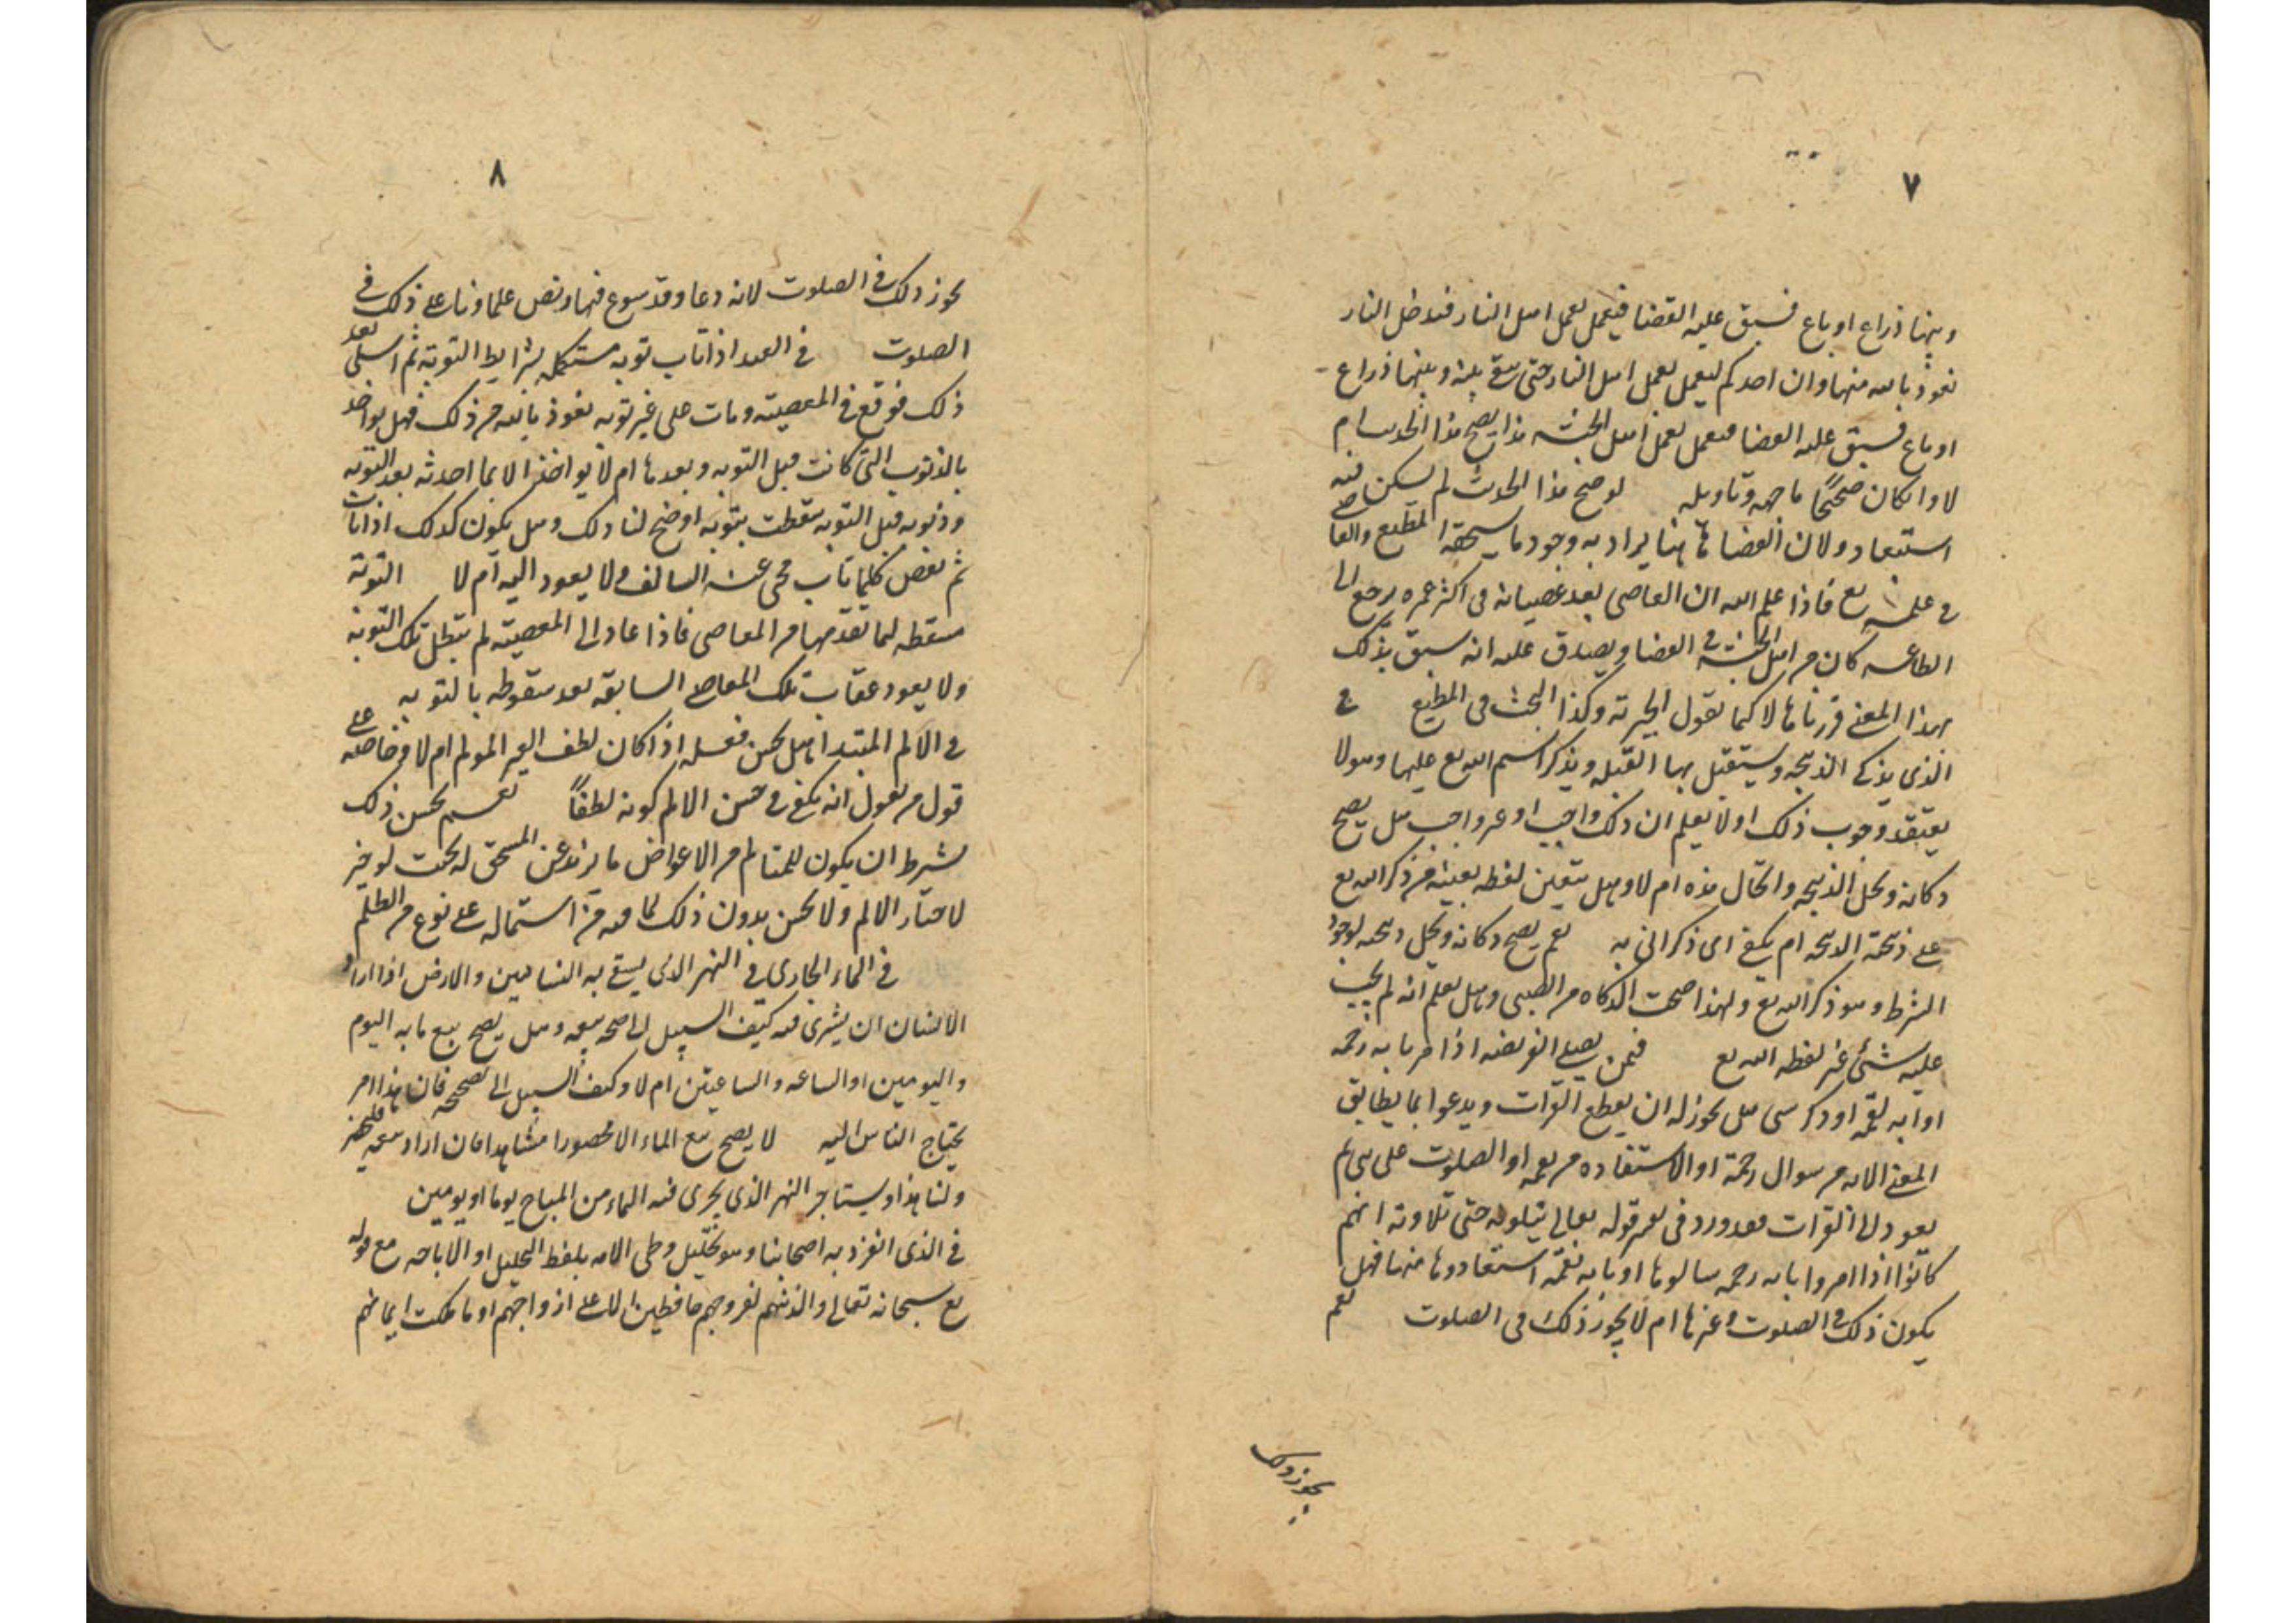 ٧
وبينها ذراع او باع فسبق عليه القضا فيعمل بعمل اهل النار فيدخل النار
نعوذ بالله منها وان احدكم ليعمل بعمل اهل النار حتى يبقى بينه وبينها ذراع
او باع فسبق عليه القضا فيعمل بعمل اهل الجنة هذا يصح هذا الحديث ام
لا وان كان صحيحًا ما جهه وتاويله لو صح هذا الحديث لم يكن فيه
استبعاد ولان القضا هاهنا يراد به وجود ما يستحقه المطيع والعاصي
في علمه تع فاذا علم الله ان العاصى بعد عصيانه فى اكثر عمره يرجع الى
الطاعه كان من اهل الجنة فى القضا ويصدق عليه انه سبق بذلك
بهذا المعنى قررناها لا كما تقول الجبرية وكذا البحث فى المطيع في
الذى يذكى الذبيحه ويستقبل بها القبله ويذكر اسم الله تع عليها وهو لا
يعتقد وجوب ذلك اولا يعلم ان ذلك واجب او غير واجب هل يصح
ذكاته ويحل الذبيحه والحال هذه ام لا وهل يتعين لفظه بعينه من ذكر الله تع
على ذبيحة الذبيحه ام يكفى اى ذكر اتى به نعم يصح ذكاته ويحل ذبيحه لوجود
الشرط وهو ذكر الله تع ولهذا صحت الذكاه من الصبى وهل يعلم انه لم يجب
عليه شئ غير لفظه الله تع فيمن يصلى الفريضه اذا مر بايه رحمه
او ايه نقمه او ذكر نبى هل يجوز له ان يقطع القرات ويدعوا بما يطابق
المعنى الايه من سوال رحمة او الاستعاده من نقمه او الصلوت على نبى ثم
يعود الى القرات فقد ورد فى تفسير قوله تعالى يتلونه حق تلاوته انهم
كانوا اذا امروا بايه رحمه سالوها او بايه نقمة استعاذوها منها فهل
يكون ذلك فى الصلوت وغيرها ام لا يجوز ذلك فى الصلوت نعم
يجوز ذلك
٨
يجوز ذلك فى الصلوت لانه دعا وقد سوغ فيها ونص علماونا على ذلك فى
الصلوت فى العبد اذا تاب توبه مستكمله بشرايط التوبة ثم ابتلى بعد
ذلك فوقع فى المعصيته ومات على غير توبه نعوذ بالله من ذلك فهل يواخذ
بالذنوب التى كانت قبل التوبه وبعدها ام لا يواخذ الا بما احدثه بعد التوبه
وذنوبه قبل التوبه سقطت بتوبه اوضح لنا ذلك وهل يكون كذلك اذا تاب
ثم نقض كلما تاب محى عنه السالف ولا يعود اليه ام لا التوبة
مسقطه لما تقدمها من المعاصى فاذا عاد الى المعصيته لم تبطل تلك التوبة
ولا يعود عقاب تلك المعاصى السابقه بعد سقوطه بالتوبه
فى الالم المبتدا هل يحسن فعله اذا كان لطف لغير المولم ام لا وخاصه على
قول من يقول انه يكفى فى حسن الالم كونه لطفاً نعم يحسن ذلك
بشرط ان يكون للمتالم من الاعواض ما يزيد عن المستحق له بحيث لو خير
لاختار الالم ولا يحسن بدون ذلك لما فيه من استماله على نوع من الظلم
فى الماء الجارى فى النهر الذى يسقى به البساتين والارض اذا اراد
الانسان ان يشترى فيه كيف السبيل الى صحه بيعه وهل يصح بيع ما به اليوم
واليومين او الساعه والساعتين ام لا وكيف السبيل الى تصحيحه فان هذا امر
يحتاج الناس اليه لا يصح بيع الماء الا محصورا مشاهدا فان اراد بيعه فليحضر
ولنا هذا ويستاجر النهر الذى يجرى فيه الماء من المباح يوما او يومين
فى الذى انفرد به اصحابنا وهو تحليل وطى الامه بلفظ التحليل او الاباحه مع قوله
تع سبحانه تعالى والذينهم لفروجهم حافظين الا على ازواجهم او ما ملكت ايمانهم